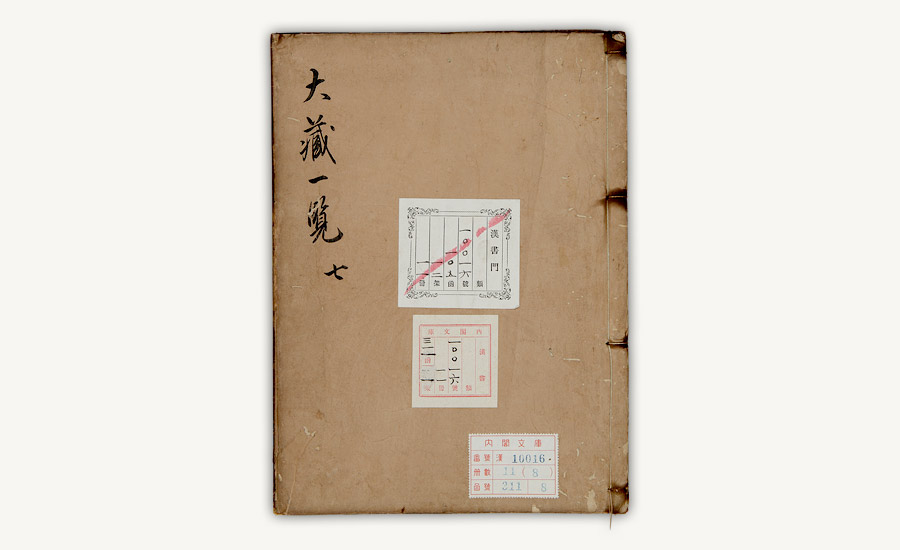 大藏一覽
七
漢書門
類
一〇〇一六號
一〇五函
一二架
一一冊
內閣文庫
漢書
類
一〇〇一六號
一一冊
三一一函
內閣文庫
番號 漢 10016
冊數 11 ( 8 )
函號 311 8